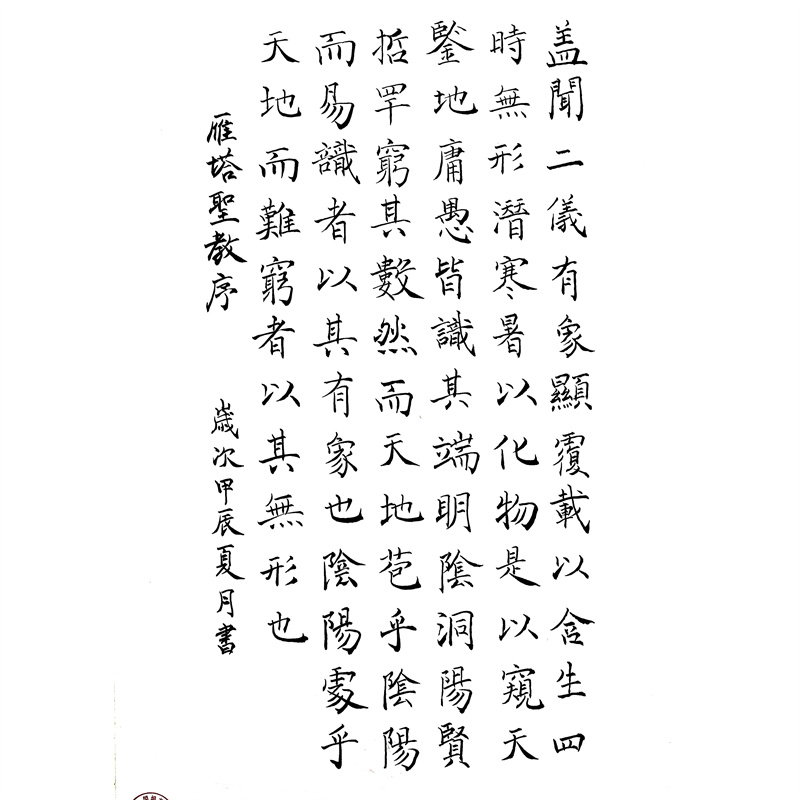 蓋聞二儀有象顯覆載以含生四
時無形潛寒暑以化物是以窺天
鑒地庸愚皆識其端明陰洞陽賢
哲罕窮其數然而天地苞乎陰陽
而易識者以其有象也陰陽處乎
天地而難窮者以其無形也
雁塔聖教序 歲次甲辰夏月書